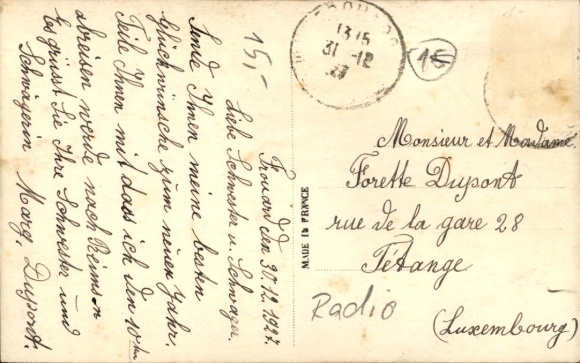 15,-
Frouard den 30.12.1927.
Liebe Schwester u. Schwager.
Sende Ihnen meine besten
Glückwünsche zum neuen Jahr.
Teile Ihnen mit dass ich den 10ten
abreisen werde nach Reims
Es grüsst Sie Ihre Schwester und
Schwägerin Marg. Dupont.
MADE IN FRANCE
1315
31-12
27
15
Monsieur et Madame
Forette Dupont
rue de la gare 28
Pétange
(Luxembourg)
Radio